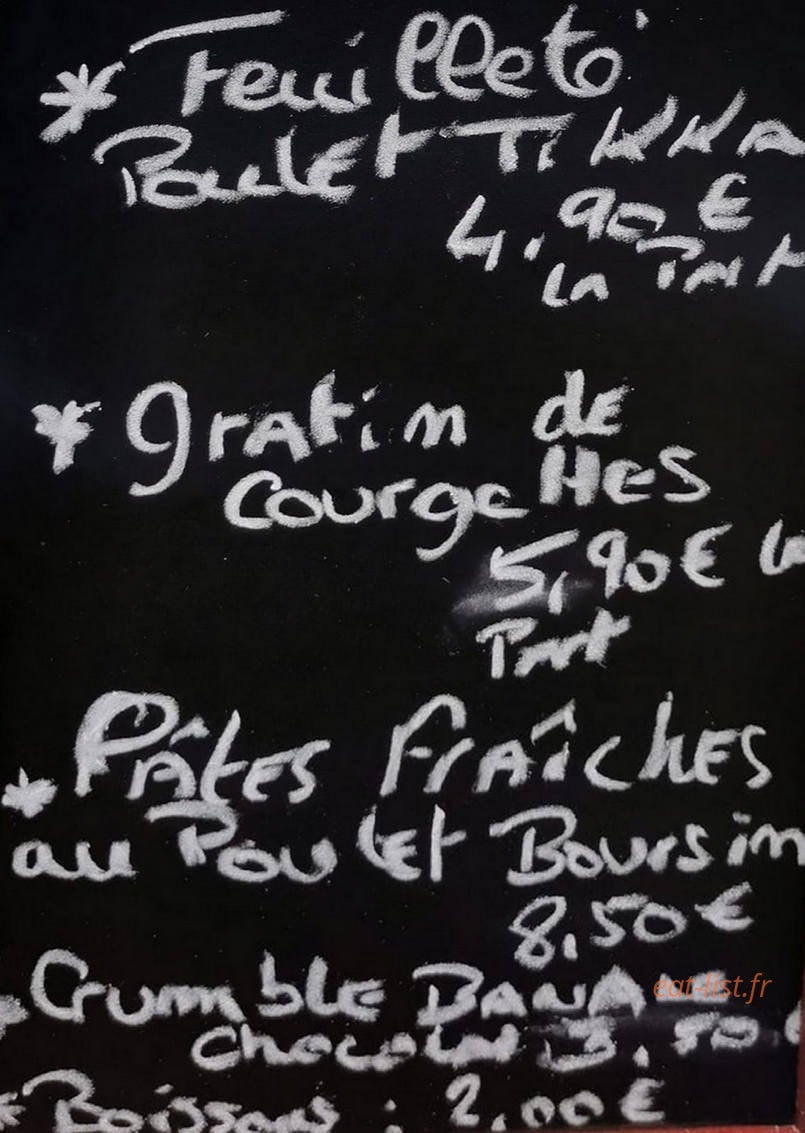 * Feuilleté
Poulet TIKKA
4.90 €
la Part
* gratin de
courgettes
5,90 € la
Part
* Pâtes fraîches
au Poulet Boursin
8,50 €
* Crumble BANANE
chocolat 3.50
* Boissons : 2,00 €
eat-list.fr